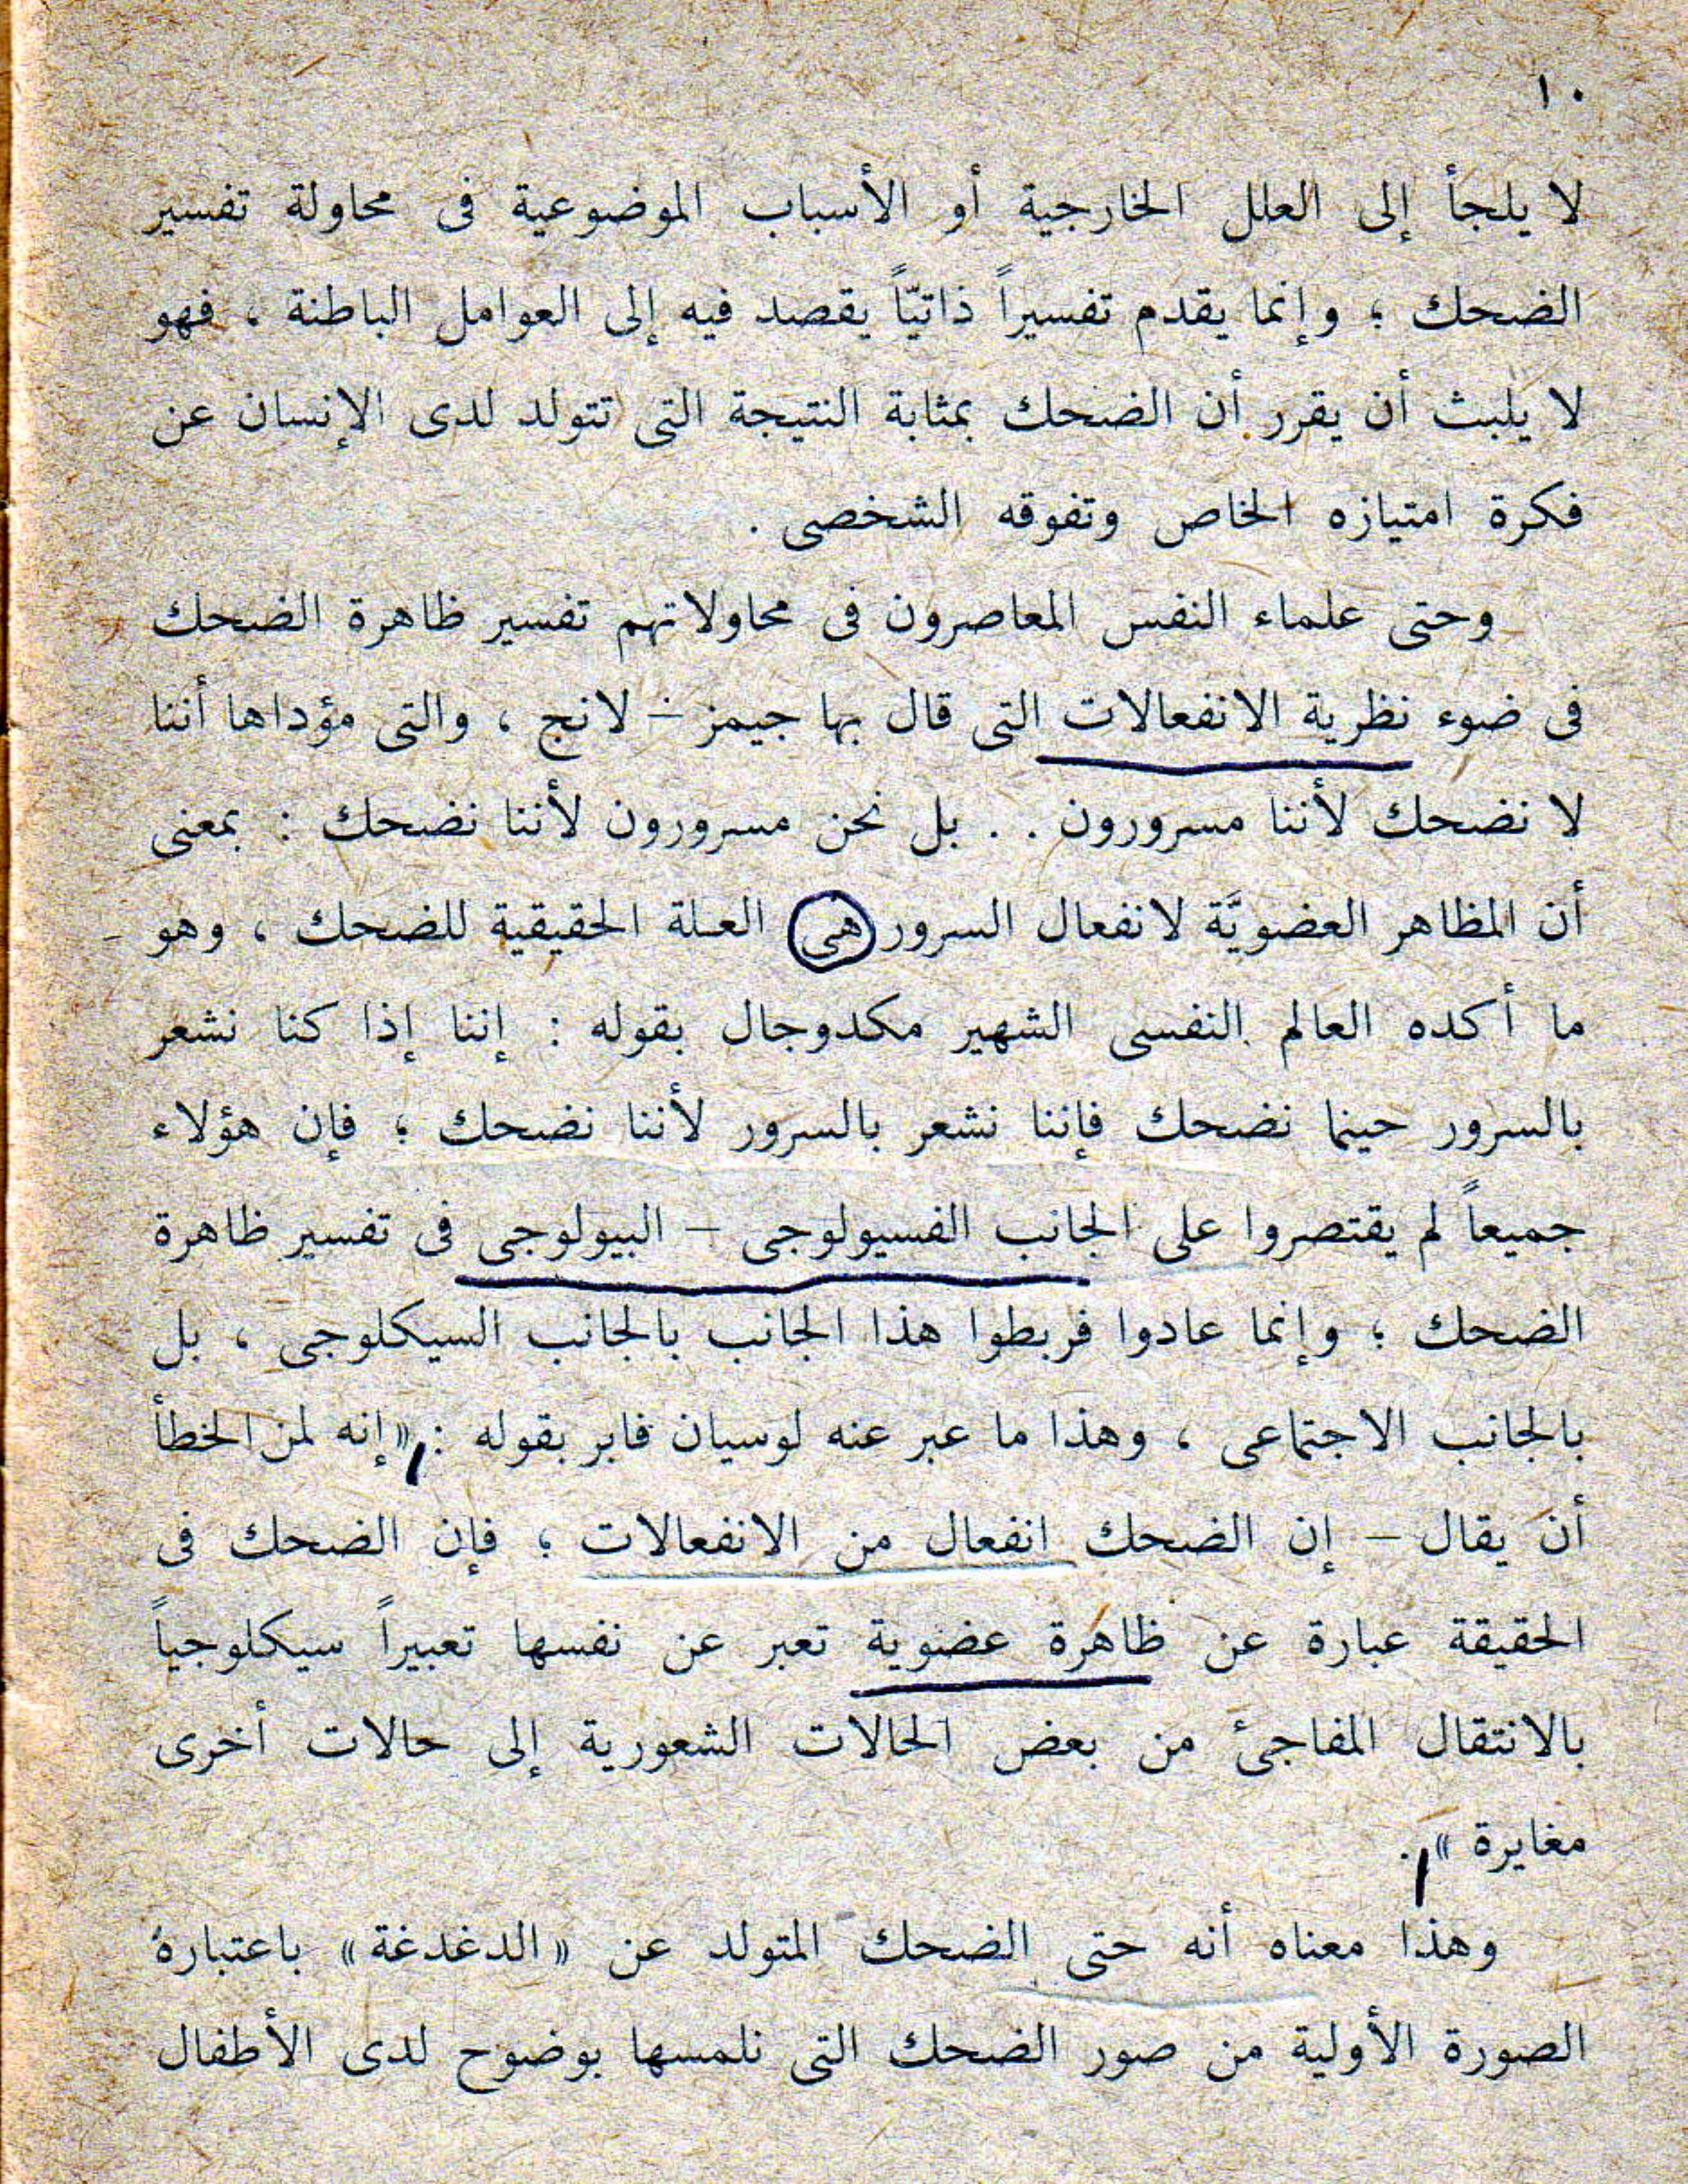 ١٠
لا يلجأ إلى العلل الخارجية أو الأسباب الموضوعية فى محاولة تفسير
الضحك ؛ وإنما يقدم تفسيراً ذاتيّاً يقصد فيه إلى العوامل الباطنة ، فهو
لا يلبث أن يقرر أن الضحك بمثابة النتيجة التى تتولد لدى الإنسان عن
فكرة امتيازه الخاص وتفوقه الشخصى .
وحتى علماء النفس المعاصرون فى محاولاتهم تفسير ظاهرة الضحك
فى ضوء نظرية الانفعالات التى قال بها جيمز – لانج ، والتى مؤداها أننا
لا نضحك لأننا مسرورون . . بل نحن مسرورون لأننا نضحك : بمعنى
أن المظاهر العضويَّة لانفعال السرور هى العلة الحقيقية للضحك ، وهو
ما أكده العالم النفسى الشهير مكدوجال بقوله : إننا إذا كنا نشعر
بالسرور حينما نضحك فإننا نشعر بالسرور لأننا نضحك ؛ فإن هؤلاء
جميعاً لم يقتصروا على الجانب الفسيولوجى – البيولوجى فى تفسير ظاهرة
الضحك ؛ وإنما عادوا فربطوا هذا الجانب بالجانب السيكلوجى ، بل
بالجانب الاجتماعى ، وهذا ما عبر عنه لوسيان فابر بقوله : «إنه لمن الخطأ
أن يقال – إن الضحك انفعال من الانفعالات ؛ فإن الضحك فى
الحقيقة عبارة عن ظاهرة عضوية تعبر عن نفسها تعبيراً سيكلوجياً
بالانتقال المفاجئ من بعض الحالات الشعورية إلى حالات أخرى
مغايرة » .
وهذا معناه أنه حتى الضحك المتولد عن «الدغدغة» باعتباره
الصورة الأولية من صور الضحك التى نلمسها بوضوح لدى الأطفال